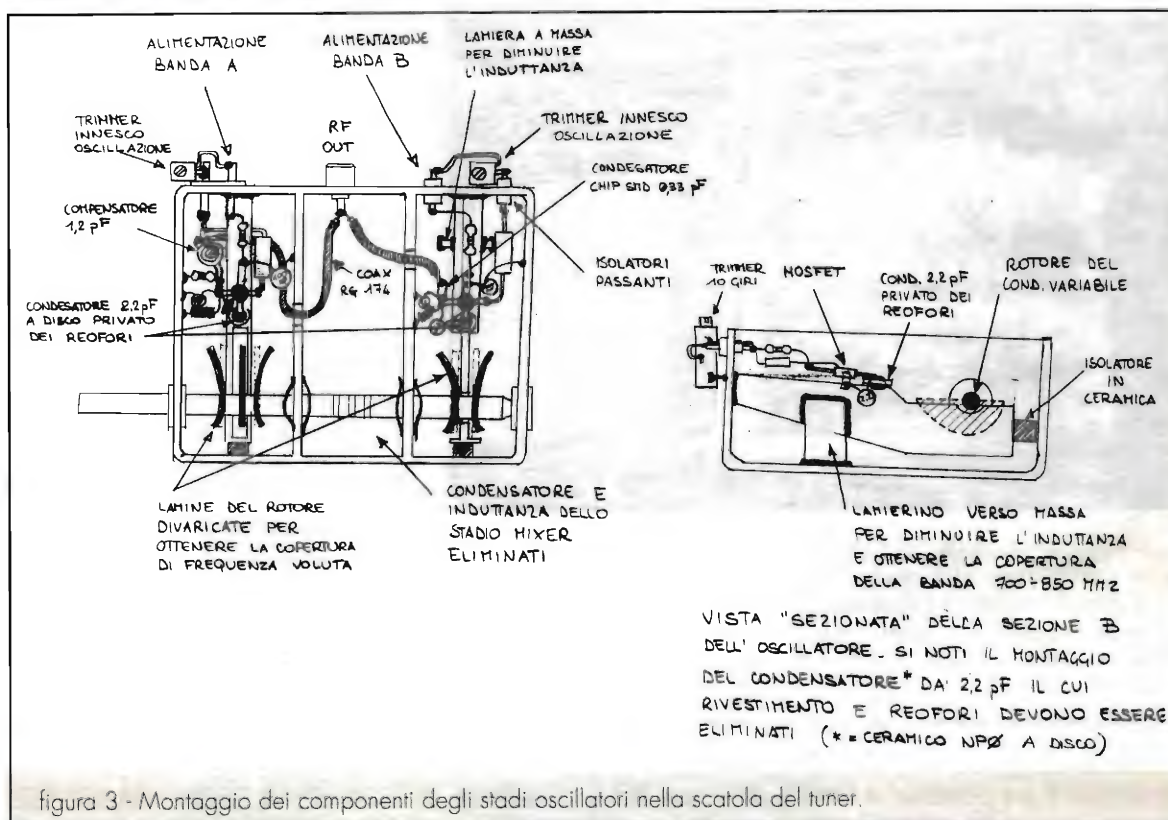 ALIMENTAZIONE
BANDA A
ALIMENTAZIONE
BANDA B
LAMIERA A MASSA
PER DIMINUIRE
L'INDUTTANZA
TRIMMER
INNESCO
OSCILLAZIONE
RF
OUT
TRIMMER INNESCO
OSCILLAZIONE
CONDESATORE
CHIP SMD 0,33 pF
COMPENSATORE
1,2 pF
ISOLATORI
PASSANTI
COAX
RG 174
CONDESATORE 2,2pF
A DISCO PRIVATO
DEI REOFORI
LAMINE DEL ROTORE
DIVARICATE PER
OTTENERE LA COPERTURA
DI FREQUENZA VOLUTA
CONDENSATORE E
INDUTTANZA DELLO
STADIO MIXER
ELIMINATI
TRIMMER
10 GIRI
MOSFET
COND. 2,2 pF
PRIVATO DEI
REOFORI
ROTORE DEL
COND. VARIABILE
ISOLATORE
IN
CERAMICA
LAMIERINO VERSO MASSA
PER DIMINUIRE L'INDUTTANZA
E OTTENERE LA COPERTURA
DELLA BANDA 700÷850 MHZ
VISTA "SEZIONATA" DELLA SEZIONE B
DELL' OSCILLATORE. SI NOTI IL MONTAGGIO
DEL CONDENSATORE* DA' 2,2 pF IL CUI
RIVESTIMENTO E REOFORI DEVONO ESSERE
ELIMINATI (* = CERAMICO NPØ A DISCO)
figura 3 - Montaggio dei componenti degli stadi oscillatori nella scatola del tuner.